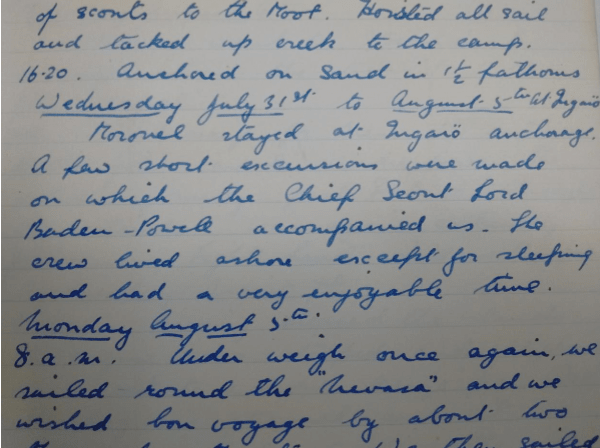 of scouts to the Moot. Hoisted all sail
and tacked up creek to the camp.
16.20. Anchored on Sand in 1½ fathoms
Wednesday July 31st to August 5th at Ingarö
Moronel stayed at Ingarö anchorage.
A few short excursions were made
on which the Chief Scout Lord
Baden-Powell accompanied us. The
crew lived ashore except for sleeping
and had a very enjoyable time.
Monday August 5th.
8.a.m. Under weigh once again, we
sailed round the "Nevasa" and we
wished bon voyage by about two